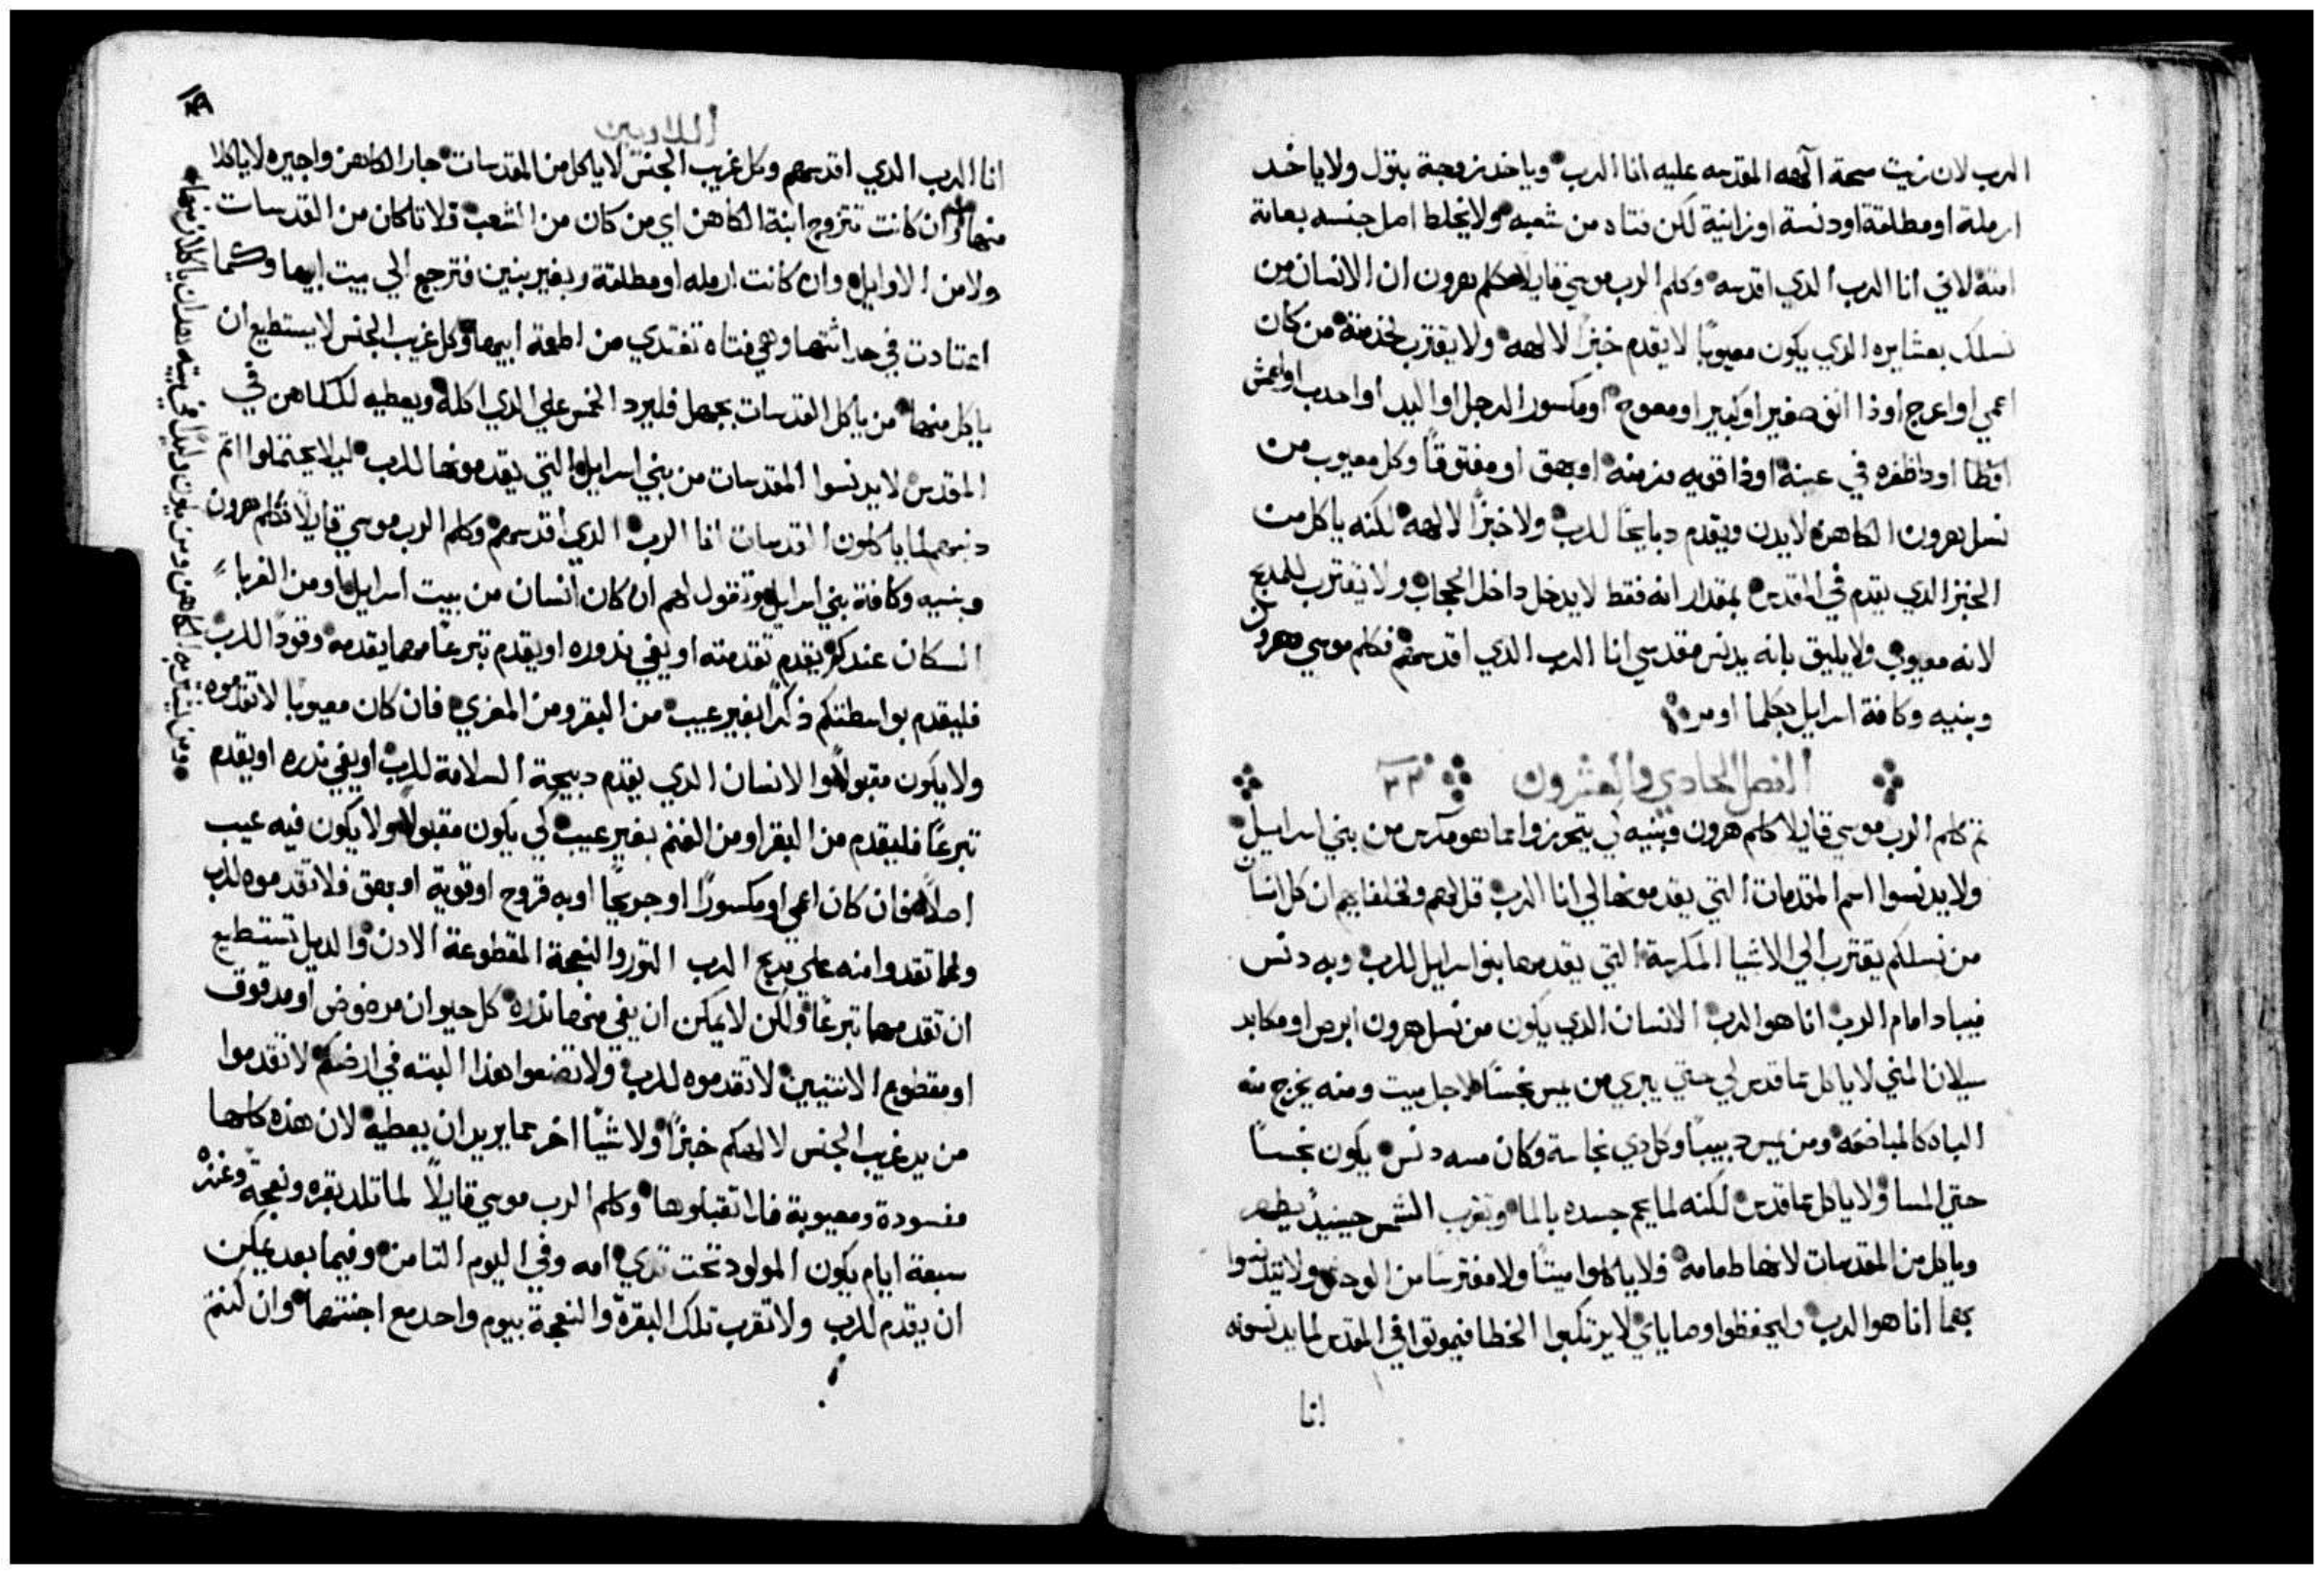 الرب لان زيت مسحة الهه المقدسه عليه انا الرب وياخد زوجة بتول ولا ياخد
ارملة او مطلقة او دنسة او زانية لكن فتاه من شعبه ولا يخلط اصل جنسه بعامة
امته لاني انا الرب الدي اقدسه وكلم الرب موسي قايلا كلم هرون ان الانسان من
نسلك بعشايره الدي يكون معيوبا لا يقدم خبزا لالهه ولا يقترب لخدمته من كان
اعمي او اعرج او ذا انف صغير او كبير او معوج او مكسور الرجل او اليد او احدب او اعمش
افطا او ذا ظفره في عينه او ذا قوبه مزمنه او بهق او مفتوقا وكل معيوب من
نسل هرون الكاهن لا يدن ويقدم دبايحا للرب ولا خبزا لالهه لكنه ياكل من
الخبز الدي يقدم في المقدس بمقدار انه فقط لا يدخل داخل الحجاب ولا يقترب للمدبح
لانه معيوب ولا يليق بانه يدنس مقدسي انا الرب الدي اقدسهم فكلم موسي هرون
وبنيه وكافة اسرايل بكلما اومر
الفصل الحادي والعشرون ٢٢
تم كلم الرب موسي قايلا كلم هرون وبنيه لي يتحرزوا عما هو مكرس من بني اسرايل
ولا يدنسوا اسم المقدسات التي يقدمونها لي انا الرب قل لهم ولخلفايهم ان كل انسان
من نسلكم يقترب الي الاشيا المكرسة التي يقدمها بنوا اسرايل للرب وبه دنس
فيباد امام الرب انا هو الرب الانسان الدي يكون من نسل هرون ابرص او مكابد
سيلان المني لا ياكل مما قدس لي حتي يبري من يمس نجسا لاجل ميت ومنه يخرج منه
الباه كالمباضعه ومن يمس دبيبا وكل دي نجاسة وكان مسه دنس يكون نجسا
حتي المسا ولا ياكل مما قدس لكنه لما يحم جسده بالما وتغرب الشمس حينيد يطهر
وياكل من المقدسات لانها طعامه فلا ياكلوا ميتا ولا مفترسا من الوحوش ولا يتدنسوا
بهما انا هو الرب وليحفظوا وصاياي لا يرتكبوا الخطا فيموتوا في المقدس لما يدنسونه
انا
١٤٩
اللاويين
انا الرب الدي اقدسهم وكل غريب الجنس لا ياكل من المقدسات جار الكاهن واجيره لا ياكلا
منها وان كانت تتزوج ابنة الكاهن اي من كان من الشعب فلا تاكل من القدسات
ولا من الاوايل وان كانت ارمله او مطلقة وبغير بنين فترجع الي بيت ابيها وكما
اعتادت في حداثتها وهي فتاه تغتدي من اطعمة ابيها وكل غريب الجنس لا يستطيع ان
ياكل منها من ياكل القدسات بجهل فليرد الخمس علي الدي اكله ويعطيه للكاهن في
المقدس لا يدنسوا المقدسات من بني اسرايل التي يقدمونها للرب ليلا يحتملوا اتم
دنبهم لما ياكلون القدسات انا الرب الدي اقدسهم وكلم الرب موسي قايلا تكلم هرون
وبنيه وكافة بني اسرايل وتقول لهم ان كان انسان من بيت اسرايل او من الغربا
السكان عندكم يقدم تقدمته او يفي ندوره او يقدم تبرعا مهما يقدمه وقودا للرب
فليقدم بواسطتكم ذكرا بغير عيب من البقر ومن المعزي فان كان معيوبا لا تقدموه
ولا يكون مقبولا والانسان الدي يقدم دبيحة السلامة للرب او يفي ندره او يقدم
تبرعا فليقدم من البقر او من الغنم بغير عيب لي يكون مقبولا ولا يكون فيه عيب
اصلا فان كان اعمي او مكسورا او جريحا او به قروح او قوبة او بهق فلا تقدموه للرب
ولما تقدوا منه علي مدبح الرب التور والنعجة المقطوعة الادن والديل تستطيع
ان تقدمهما تبرعا ولكن لا يمكن ان يفي منهما ندره كل حيوان مرضوض او مدقوق
او مقطوع الانتيين لا تقدموه للرب ولا تصنعوا هذا البته في ارضكم لا تقدموا
من يد غريب الجنس لالهكم خبزا ولا شيا اخر مما يريد ان يعطيه لان هذه كلها
مفسودة ومعيوبة فلا تقبلوها وكلم الرب موسي قايلا لما تلد بقره ونعجة وعنزه
سبعة ايام يكون المولود تحت تدي امه وفي اليوم التامن وفيما بعد يمكن
ان يقدم للرب ولا تقرب تلك البقرة والنعجة بيوم واحد مع اجنتهما وان كنتم
ومن اشتراه الكاهن ومن يكون وليدا في بيته هدان ياكلان منها